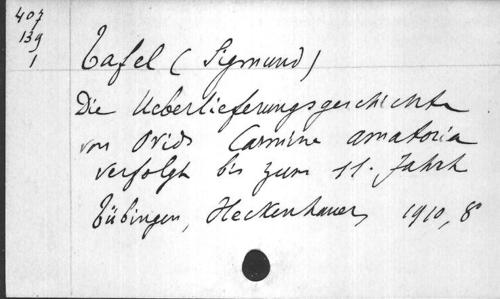 407
139
1
Tafel (Sigmund)
Die Ueberlieferungsgeschichte
von Ovids Carmina amatoria
verfolgt bis zum 11. Jahrh
Tübingen, Heckenhauer, 1910, 8°